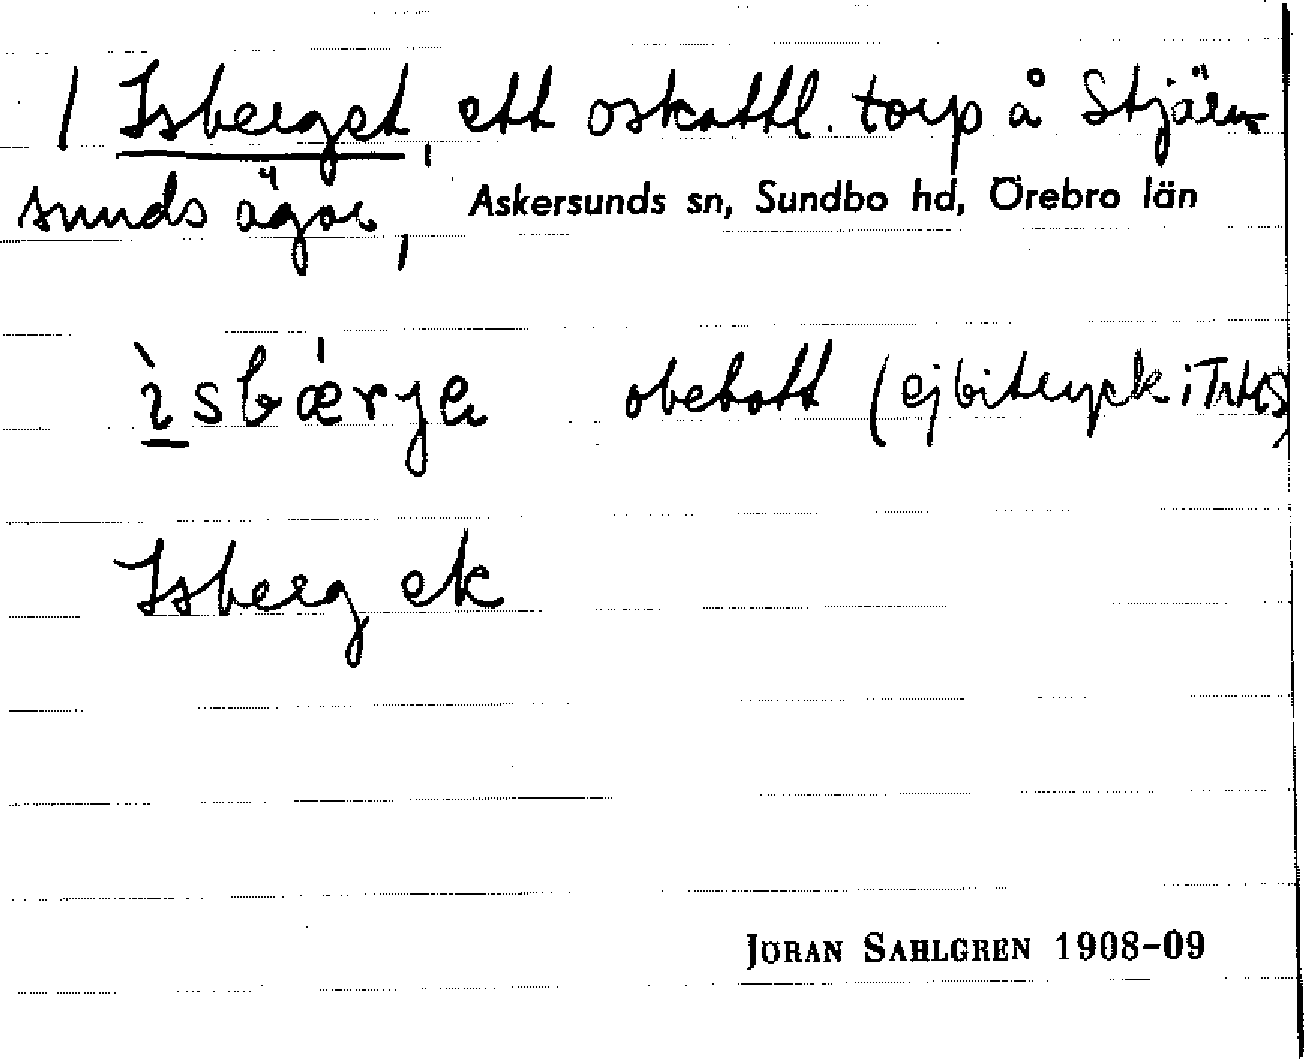 / Isberget, ett oskattl. torp å Stjärn-
sunds ägor, Askersunds sn, Sundbo hd, Örebro län
ìsbǽrje obebott (ej bitryck i
Isberg ek
JÖRAN SAHLGREN 1908-09